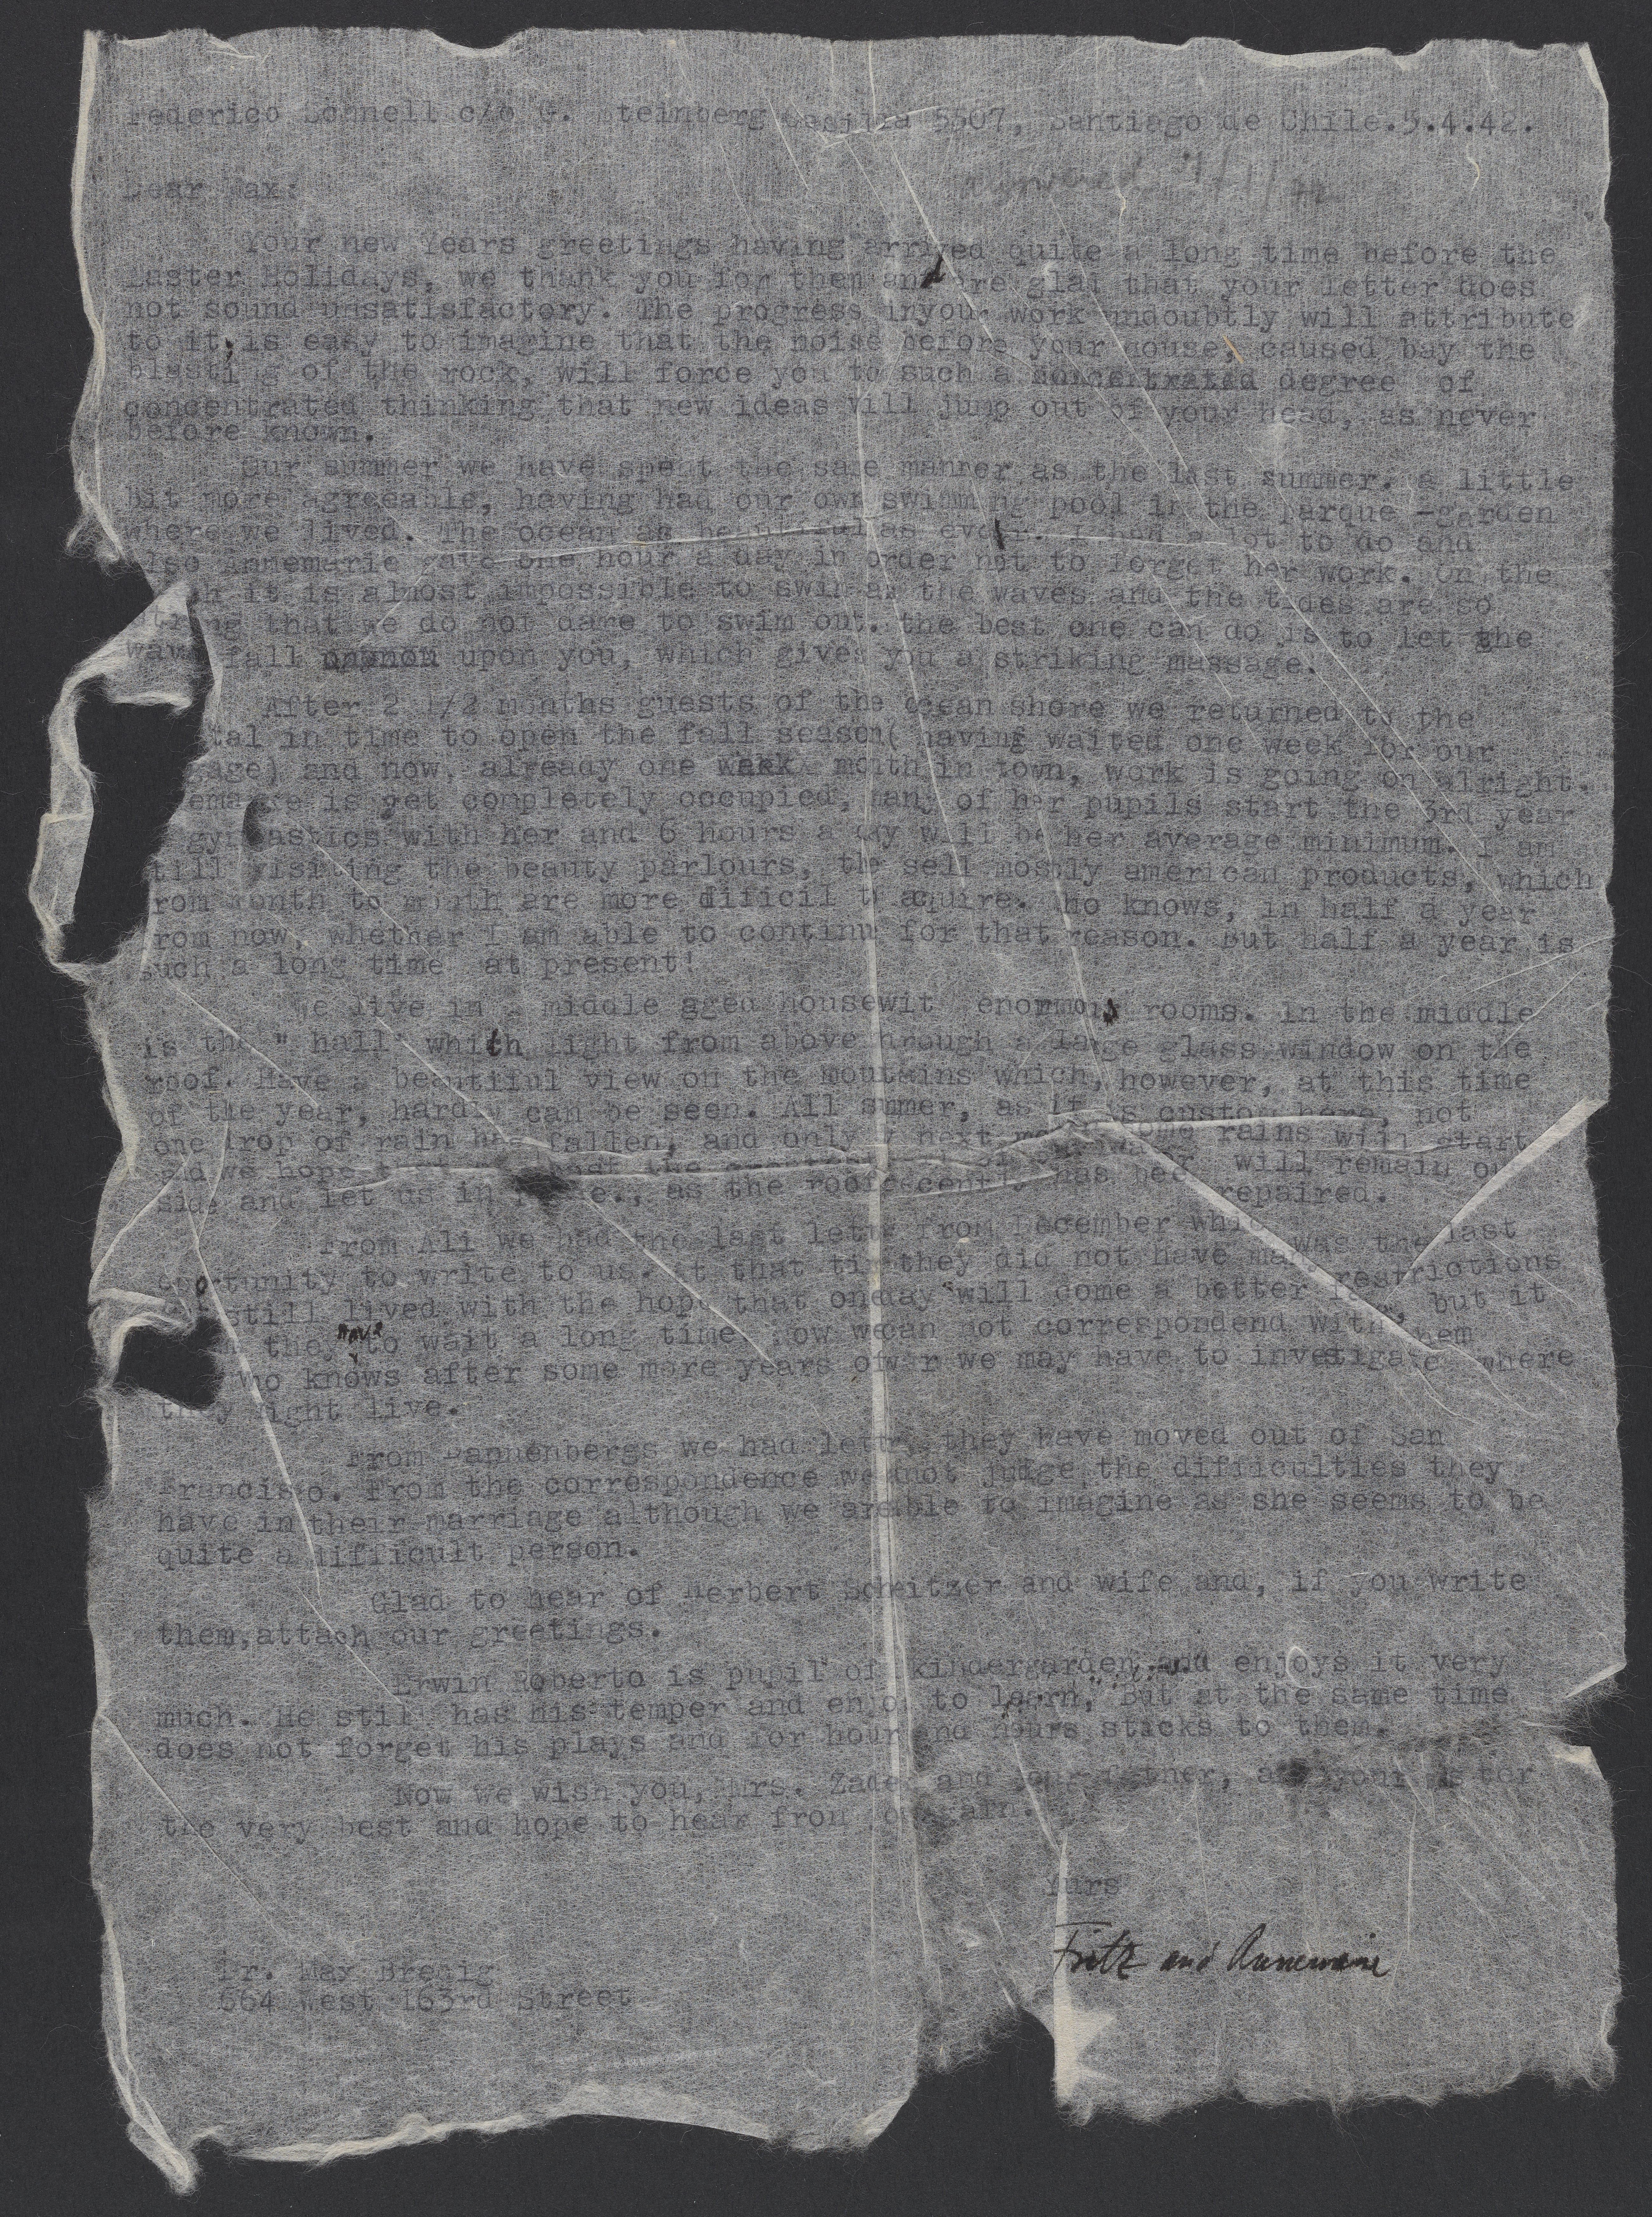 Federico Schnell c/o G. Steinberg Casilla 5507, Santiago de Chile.5.4.42.
answered
Dear Max:
Your new Years greetings having arrived quite a long time before the
Easter Holidays, we thank you for them and are glad that your letter does
not sound unsatisfactory. The progress inyour work undoubtly will attribute
to it, is easy to imagine that the noise before your house, caused bay the
blasting of the rock, will force you to such a degree of
concentrated thinking that new ideas will jump out of your head, as never
before known.
Our summer we have spent the same manner as the last summer. a little
bit more agreeable, having had our own swimming pool in the parque -garden
where we lived. The ocean as beautiful as ever. I had a lot to do and
also Annemarie gave one hour a day in order not to forget her work. On the
it is almost impossible to swim as the waves and the tides are so
strong that we do not dare to swim out. the best one can do is to let the
wave fall upon you, which gives you a striking massage.
After 2 1/2 months guests of the ocean shore we returned to the
tal in time to open the fall season( having waited one week for our
gage) and now, already one month in town, work is going on alright.
is yet completely occupied, many of her pupils start the 3rd year
gymnastics with her and 6 hours a day will be her average minimum. I am
till visiting the beauty parlours, the sell mostly american products, which
rom month to month are more dificil to acquire. Who knows, in half a year
rom now, whether I am able to continu for that reason. But half a year is
such a long time at present!
We live in a middle aged housewit enormous rooms. In the middle
is the " hall" which light from above through a large glass window on the
roof. Have a beautiful view on the moutains which, however, at this time
of the year, hardly can be seen. All summer, as it is custom here, not
one drop of rain has fallen, and only next some rains will start
and we hope will remain out
side and let us in , as the roof has been repaired.
From Ali we had the last letter from December which was the last
oportunity to write to us. At that time they did not have many restrictions
still lived with the hope that oneday will come a better , but it
they have to wait a long time. Now wecan not correspondend with them
who knows after some more years of war we may have to investigate where
they might live.
From Dannenbergs we had lettr, they have moved out of San
Francisco. From the correspondence we not judge the difficulties they
have in their marriage although we are able to imagine as she seems to be
quite a difficult person.
Glad to hear of Herbert and wife and, if you write
them, attach our greetings.
Erwin Roberto is pupil of kindergarden and enjoys it very
much. He still has his temper and enjoys to learn, But at the same time
does not forget his plays and for hours and hours sticks to them.
Now we wish you, Mrs. Zadek and your father, and your sister
the very best and hope to hear from you again.
Yurs
Fritz and Annemarie
Dr. Max Brenig
664 West 163rd Street